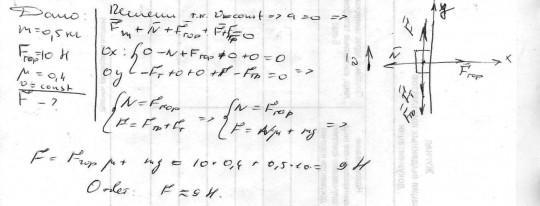 Дано:
m = 0,5 кг
Fгор = 10 Н
μ = 0,4
υ = const
F - ?
Решение т.к. υ = const => a = 0 =>
Fт + N + Fгор + F + Fтр = 0
Ox: { 0 - N + Fгор + 0 + 0 = 0
Oy { -Fт + 0 + 0 + F - Fтр = 0 =>
{ N = Fгор
{ F = Fтр + Fт
=> { N = Fгор
{ F = Nμ + mg =>
F = Fгор μ + mg = 10 · 0,4 + 0,5 · 10 = 9 Н
Ответ: F = 9 Н.
y
x
N
Fгор
F
Fт
Fтр